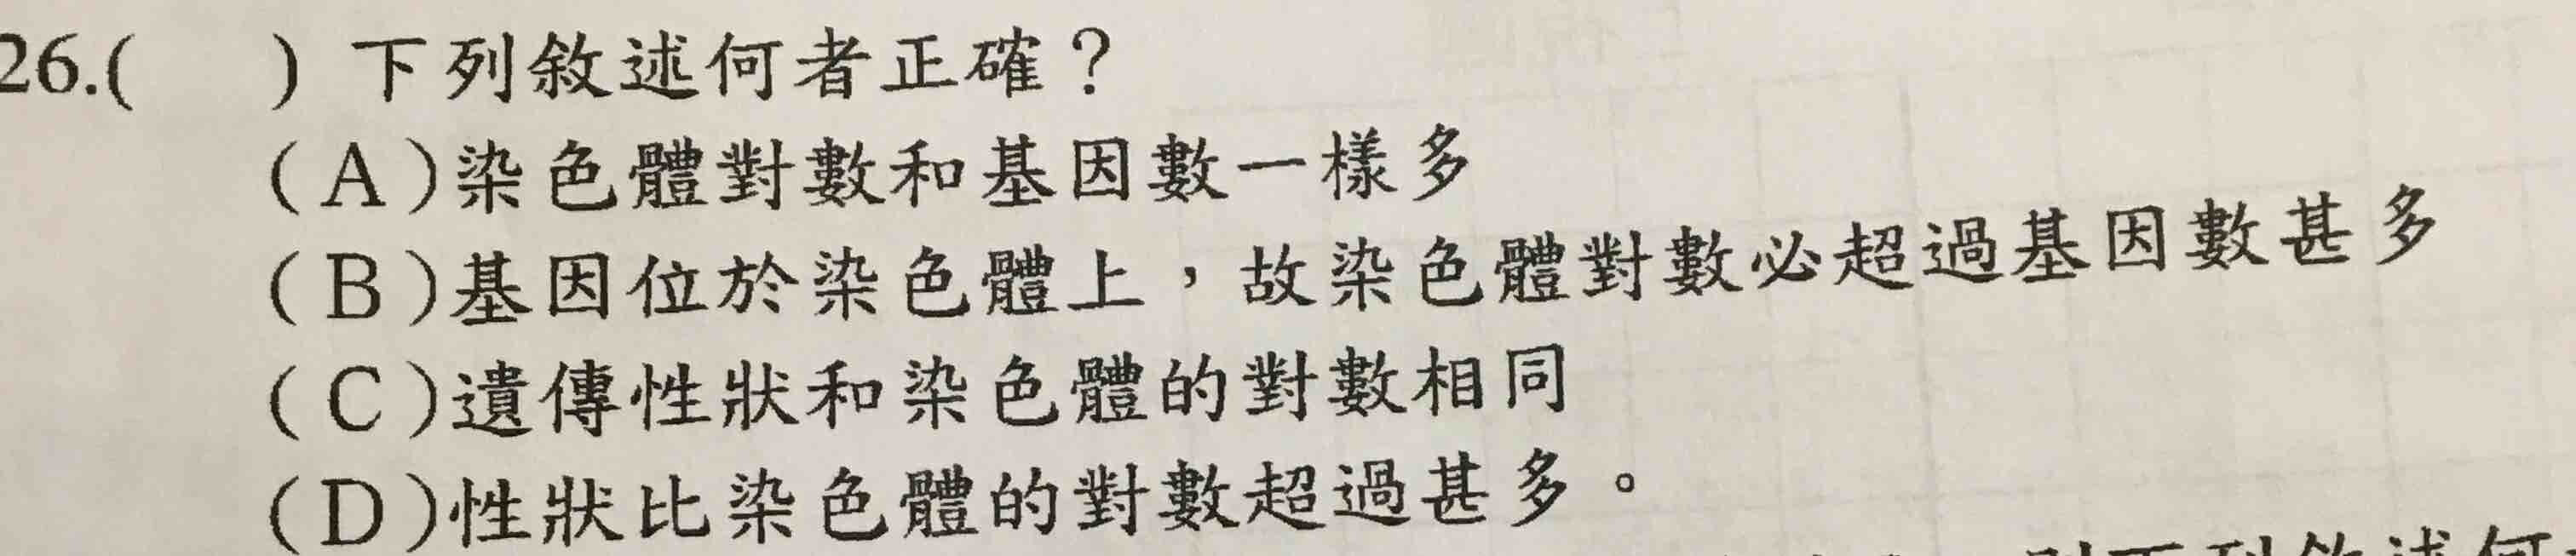 26.(　　) 下列敘述何者正確？
(A)染色體對數和基因數一樣多
(B)基因位於染色體上，故染色體對數必超過基因數甚多
(C)遺傳性狀和染色體的對數相同
(D)性狀比染色體的對數超過甚多。